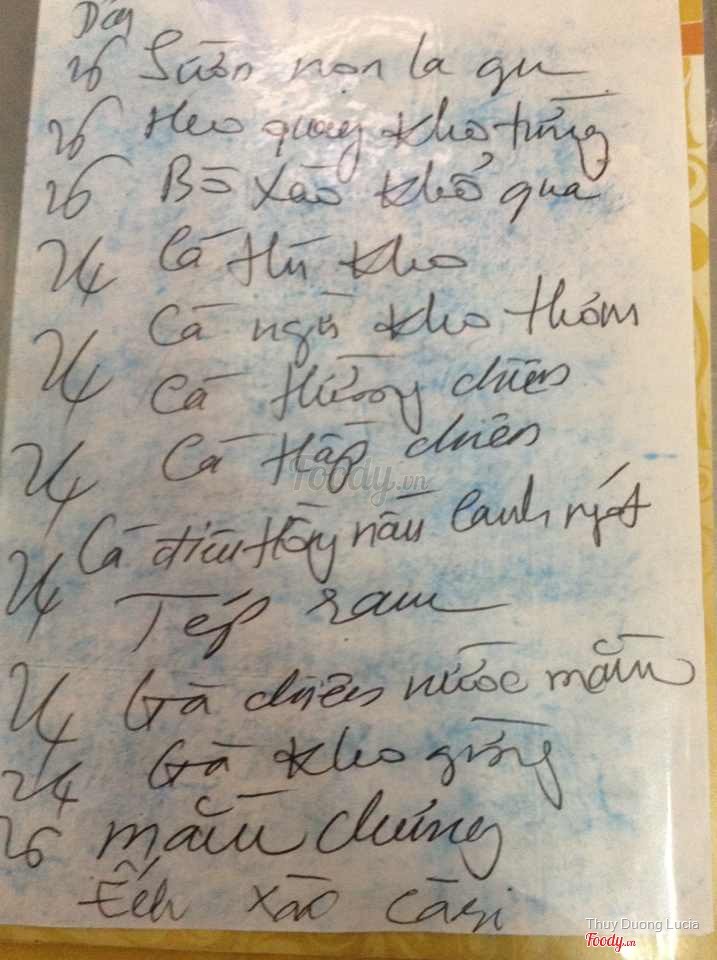 26 Sườn non la gu
26 Heo quay kho trứng
26 Bò xào khổ qua
24 Cá thu kho
Cá ngừ kho thơm
24 Cá tường chiên
24 Cá tráp chiên
Cá điêu hồng nấu canh ngót
24 Tép ram
24 Gà chiên nước mắm
24 Gà kho gừng
26 mắm chưng
Ếch xào cà ri
Foody.vn
Thuy Duong Lucia
Foody.vn